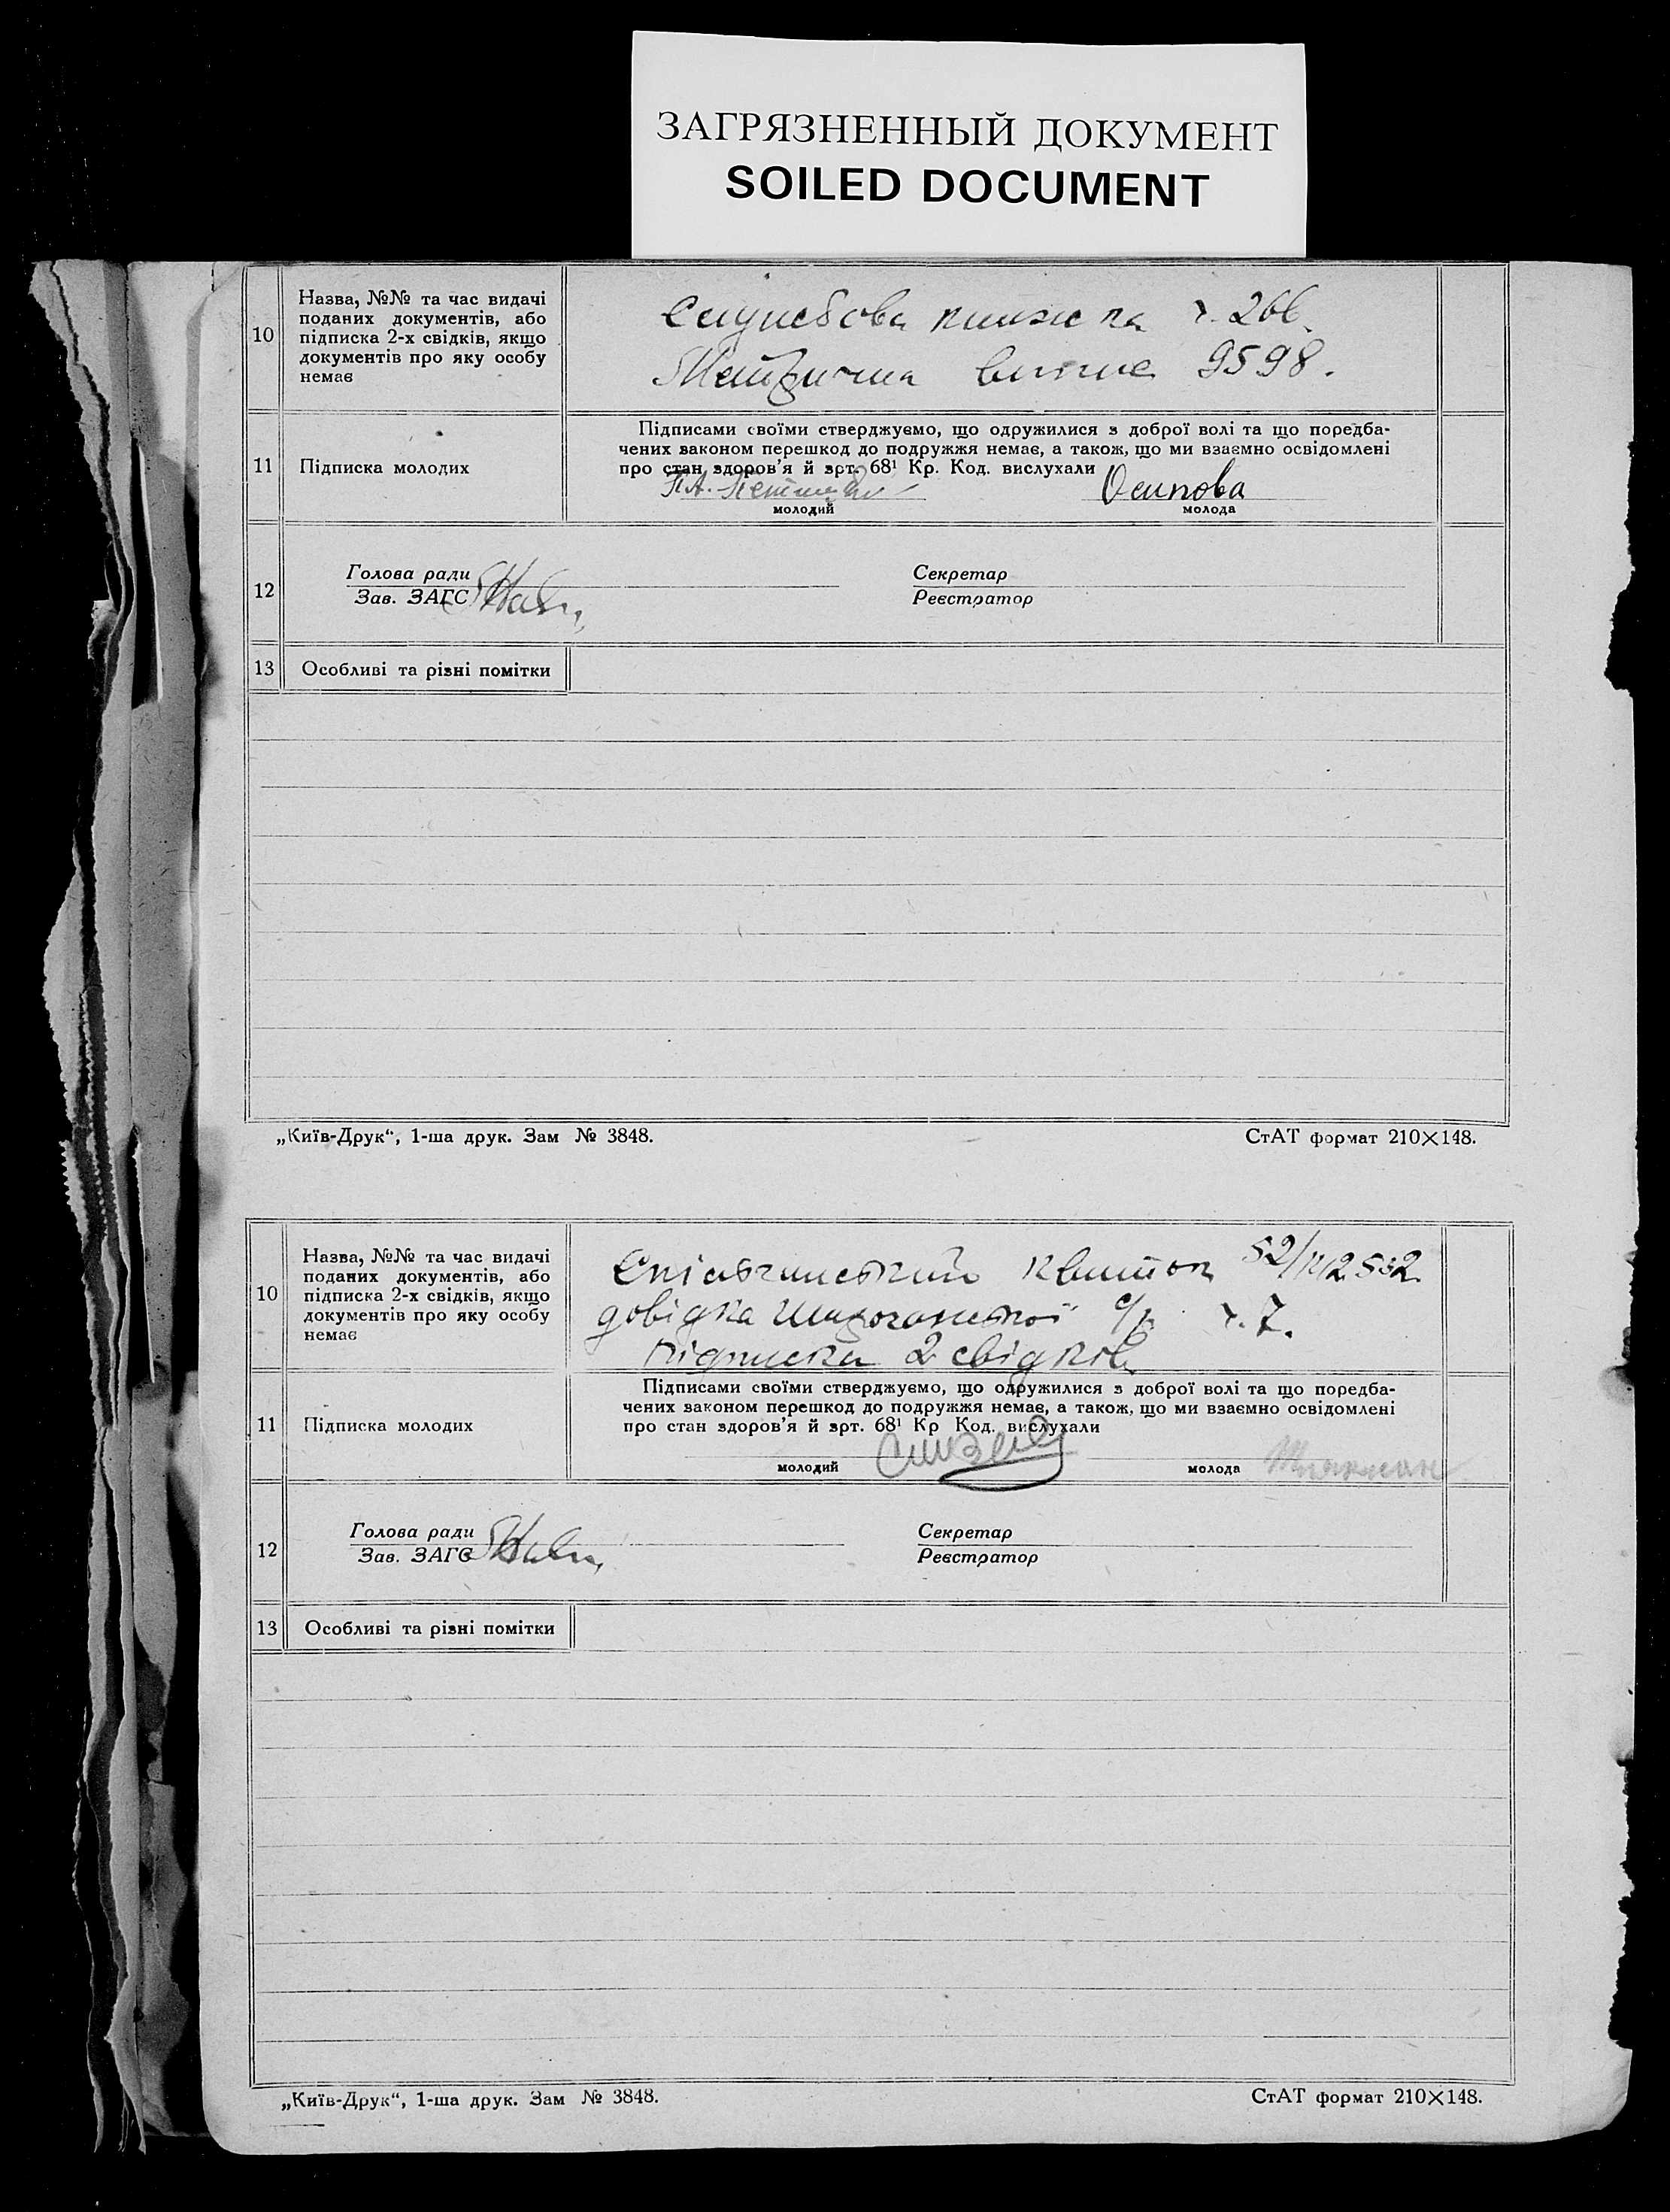 ЗАГРЯЗНЕННЫЙ ДОКУМЕНТ
SOILED DOCUMENT
10
Назва, №№ та час видачі
поданих документів, або
підписка 2-х свідків, якщо
документів про яку особу
немає
Службова книжка ч. 266.
Метрична 9598.
11
Підписка молодих
Підписами своїми стверджуємо, що одружилися з доброї волі та що поредба-
чених законом перешкод до подружжя немає, а також, що ми взаємно освідомлені
про стан здоров'я й зрт. 68¹ Кр. Код. вислухали
П.А. Осипова
молодий молода
12
Голова ради
Зав. ЗАГС
Секретар
Реєстратор
13
Особливі та різні помітки
„Київ-Друк“, 1-ша друк. Зам № 3848.
СтАТ формат 210×148.
10
Назва, №№ та час видачі
поданих документів, або
підписка 2-х свідків, якщо
документів про яку особу
немає
квиток
довідка с/р ч. 7.
підписка 2 свідків
11
Підписка молодих
Підписами своїми стверджуємо, що одружилися з доброї волі та що поредба-
чених законом перешкод до подружжя немає, а також, що ми взаємно освідомлені
про стан здоров'я й зрт. 68¹ Кр Код. вислухали
молодий молода
12
Голова ради
Зав. ЗАГС
Секретар
Реєстратор
13
Особливі та різні помітки
„Київ-Друк“, 1-ша друк. Зам № 3848.
СтАТ формат 210×148.